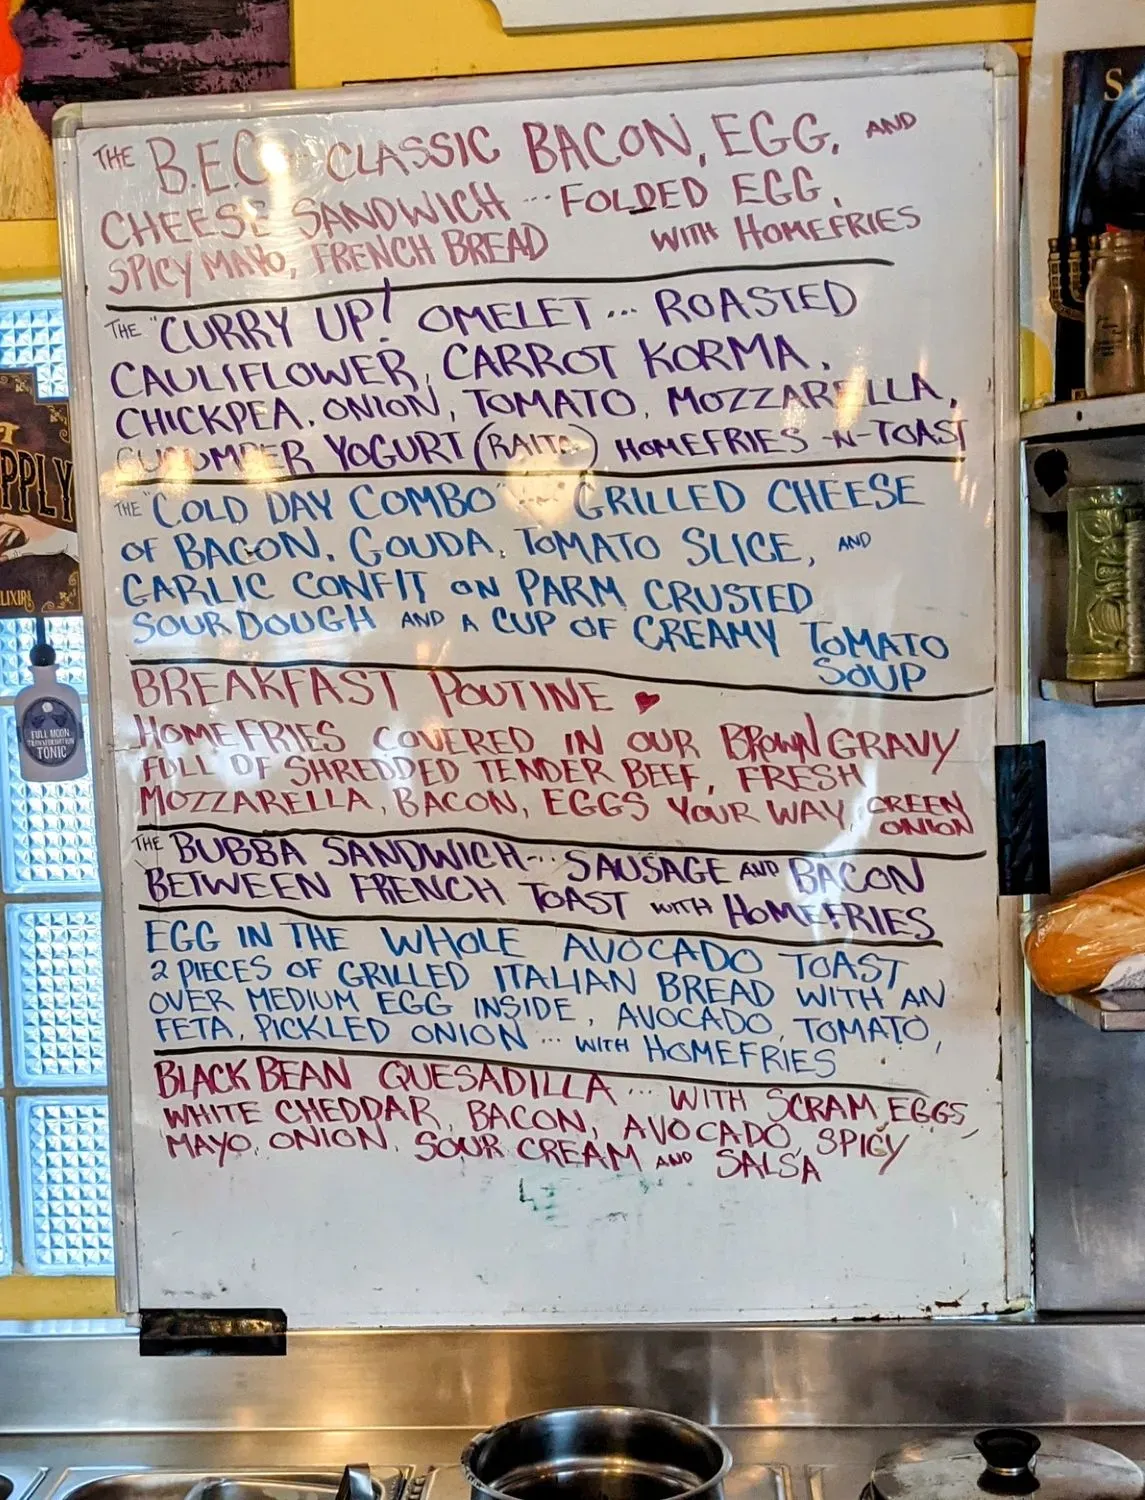 THE B.E.C. CLASSIC BACON, EGG, AND
CHEESE SANDWICH ... FOLDED EGG,
SPICY MAYO, FRENCH BREAD WITH HOMEFRIES
THE "CURRY UP! OMELET ... ROASTED
CAULIFLOWER, CARROT KORMA,
CHICKPEA, ONION, TOMATO, MOZZARELLA,
CUCUMBER YOGURT (RAITA) HOMEFRIES -N-TOAST
THE "COLD DAY COMBO" ... GRILLED CHEESE
OF BACON, GOUDA, TOMATO SLICE, AND
GARLIC CONFIT ON PARM CRUSTED
SOURDOUGH AND A CUP OF CREAMY TOMATO
SOUP
BREAKFAST POUTINE ♥
HOMEFRIES COVERED IN OUR BROWN GRAVY
FULL OF SHREDDED TENDER BEEF, FRESH
MOZZARELLA, BACON, EGGS YOUR WAY, GREEN
ONION
THE BUBBA SANDWICH... SAUSAGE AND BACON
BETWEEN FRENCH TOAST WITH HOMEFRIES
EGG IN THE WHOLE AVOCADO TOAST
2 PIECES OF GRILLED ITALIAN BREAD WITH AN
OVER MEDIUM EGG INSIDE, AVOCADO, TOMATO,
FETA, PICKLED ONION ... WITH HOMEFRIES
BLACK BEAN QUESADILLA ... WITH SCRAM EGGS,
WHITE CHEDDAR, BACON, AVOCADO, SPICY
MAYO, ONION, SOUR CREAM AND SALSA
PPLY
ELIXIRS
FULL MOON
TRANSFORMATION
TONIC
S